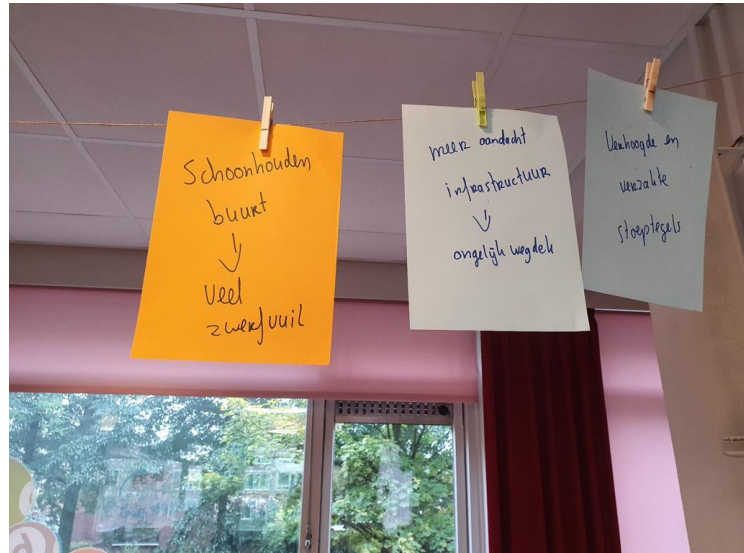 Schoonhouden
buurt
↓
veel
zwerfvuil
meer aandacht
infrastructuur
↓
ongelijk wegdek
Verhoogde en
verzakte
stoeptegels